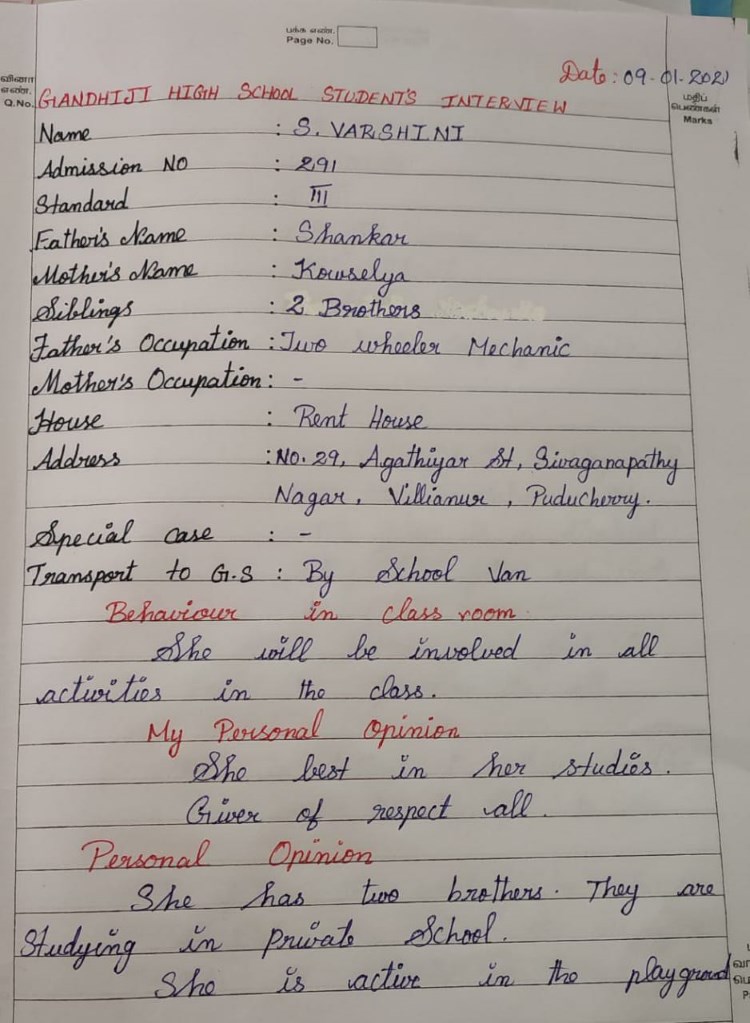 பக்க எண்.
Page No.
Date: 09-01-2021
வினா
எண்.
Q.No.
GANDHIJI HIGH SCHOOL STUDENT'S INTERVIEW
மதிப்
பெண்கள்
Marks
Name : S. VARSHINI
Admission NO : 291
Standard : III
Father's Name : Shankar
Mother's Name : Kowselya
Siblings : 2 Brothers
Father's Occupation : Two wheeler Mechanic
Mother's Occupation : -
House : Rent House
Address : NO. 29, Agathiyar St, Sivaganapathy
Nagar, Villianur, Puducherry.
Special case : -
Transport to G.S : By School Van
Behaviour in class room
She will be involved in all
activities in the class.
My Personal Opinion
She best in her studies.
Giver of respect all.
Personal Opinion
She has two brothers. They are
Studying in Private School.
She is active in the playground